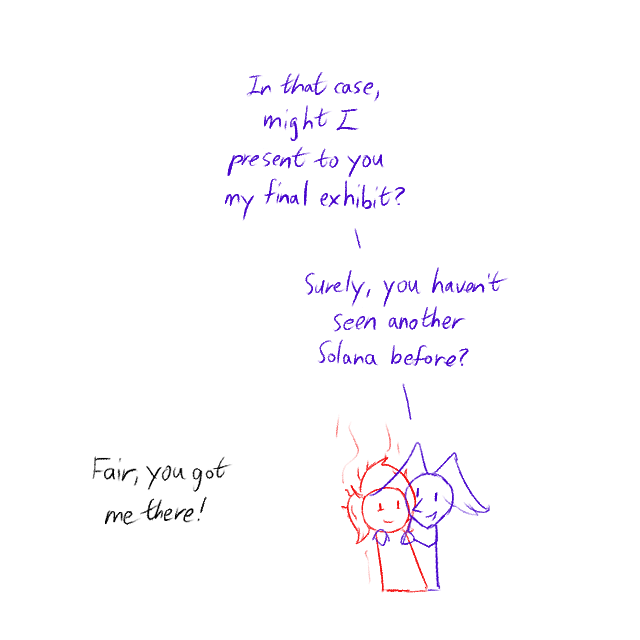 In that case,
might I
present to you
my final exhibit?
Surely, you haven't
seen another
Solana before?
Fair, you got
me there!